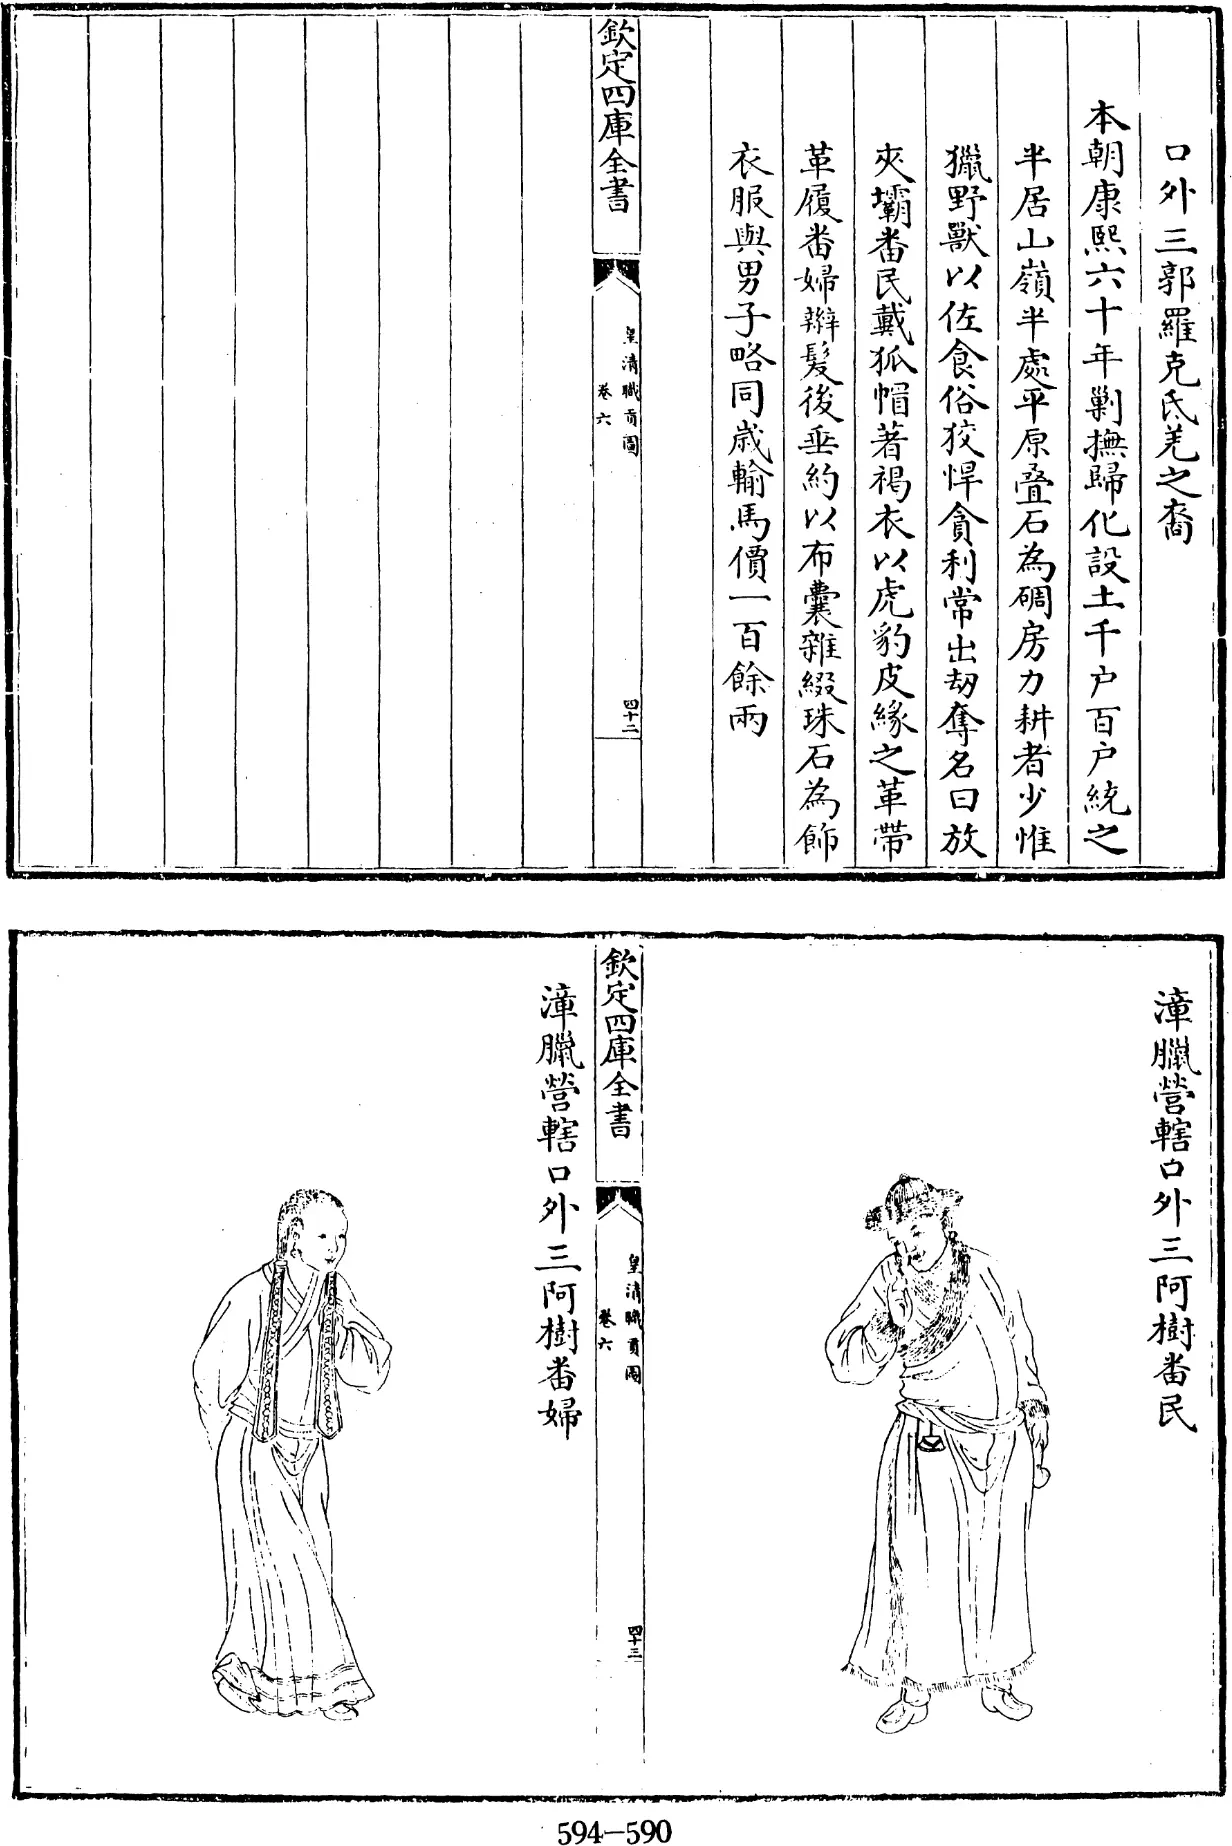 口外三郭羅克氐羌之裔
本朝康熙六十年剿撫歸化設土千户百户統之
半居山嶺半處平原叠石為碉房力耕者少惟
獵野獸以佐食俗狡悍貪利常出刼奪名曰放
夾壩番民戴狐帽著褐衣以虎豹皮緣之革帶
革履番婦辮髮後垂約以布囊雜綴珠石為飾
衣服與男子略同歲輸馬價一百餘兩
欽定四庫全書
皇清職貢圖
卷六
四十二
漳臘營轄口外三阿樹番民
欽定四庫全書
皇清職貢圖
卷六
四十三
漳臘營轄口外三阿樹番婦
594-590